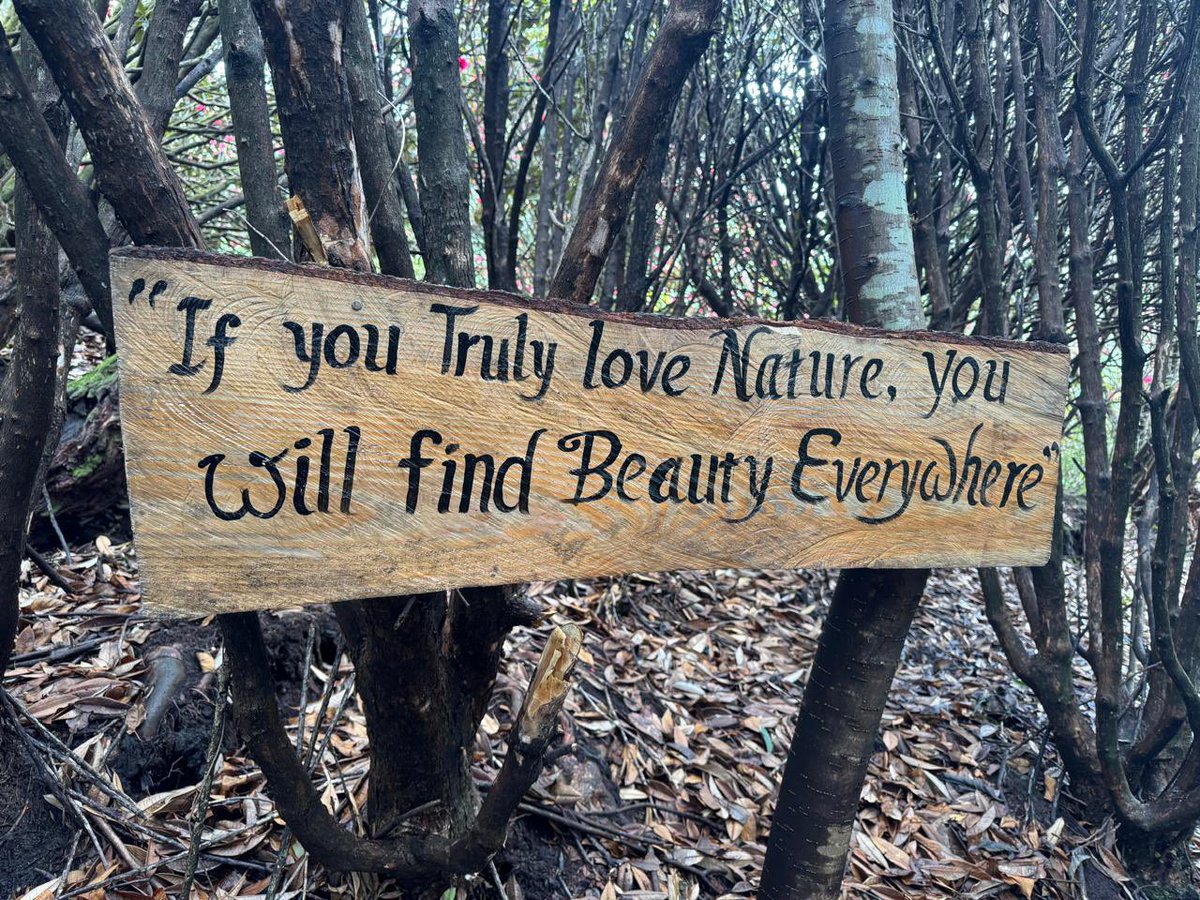 “If you Truly love Nature, you
will find Beauty Everywhere”